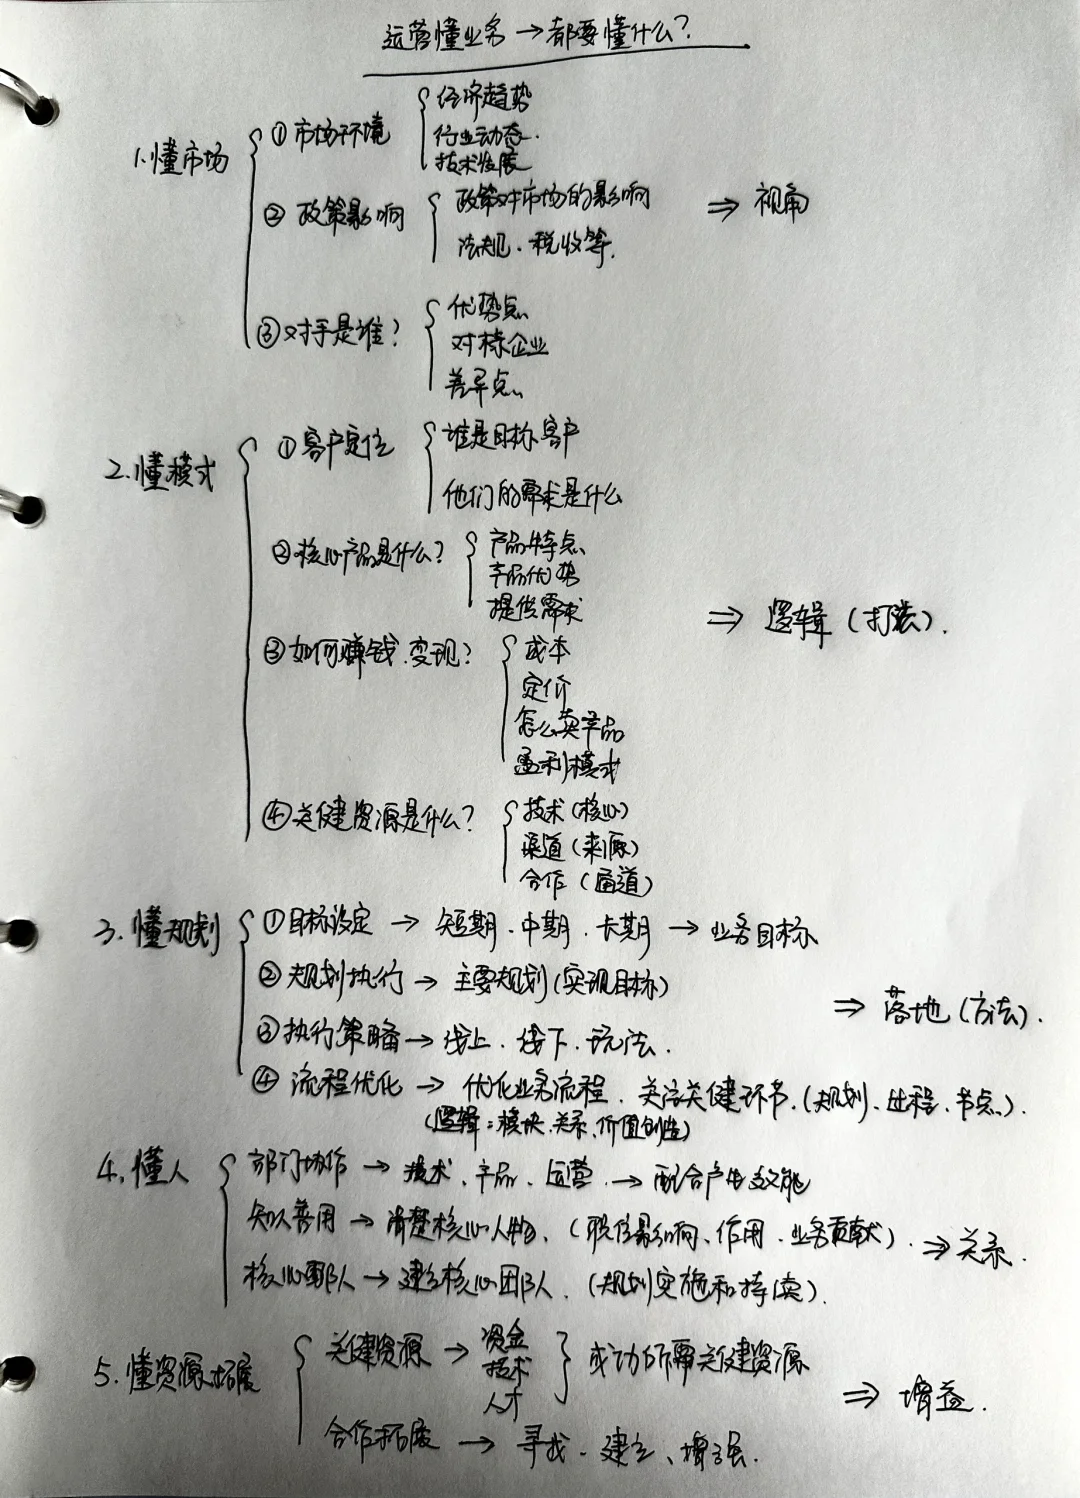 运营懂业务→都要懂什么?
1.懂市场
①市场环境
经济趋势
行业动态.
技术发展
②政策影响
政策对市场的影响
法规、税收等.
⇒视角
③对手是谁?
优势点
对标企业
差异点
2.懂模式
①客户定位
谁是目标客户
他们的需求是什么
②核心产品是什么?
产品特点
产品优势
提供需求
⇒逻辑(打法).
③如何赚钱、变现?
成本
定价
怎么卖产品
盈利模式
④关健资源是什么?
技术(核心)
渠道(来源)
合作(通道)
3.懂规划
①目标设定→短期、中期、长期→业务目标
②规划执行→主要规划(实现目标)
③执行策略→线上、线下、玩法.
④流程优化→优化业务流程、关注关健环节.(规划、进程、节点).
(逻辑:模块、关系、价值创造)
⇒落地(方法).
4.懂人
部门协作→技术、产品、运营→配合产生效能
知人善用→清楚核心人物、(职位影响、作用、业务贡献).
核心团队→建立核心团队、(规划实施和持续).
⇒关系.
5.懂资源拓展
关健资源→
资金
技术
人才
成功所需关健资源
合作拓展→寻找、建立、增强.
⇒增益.